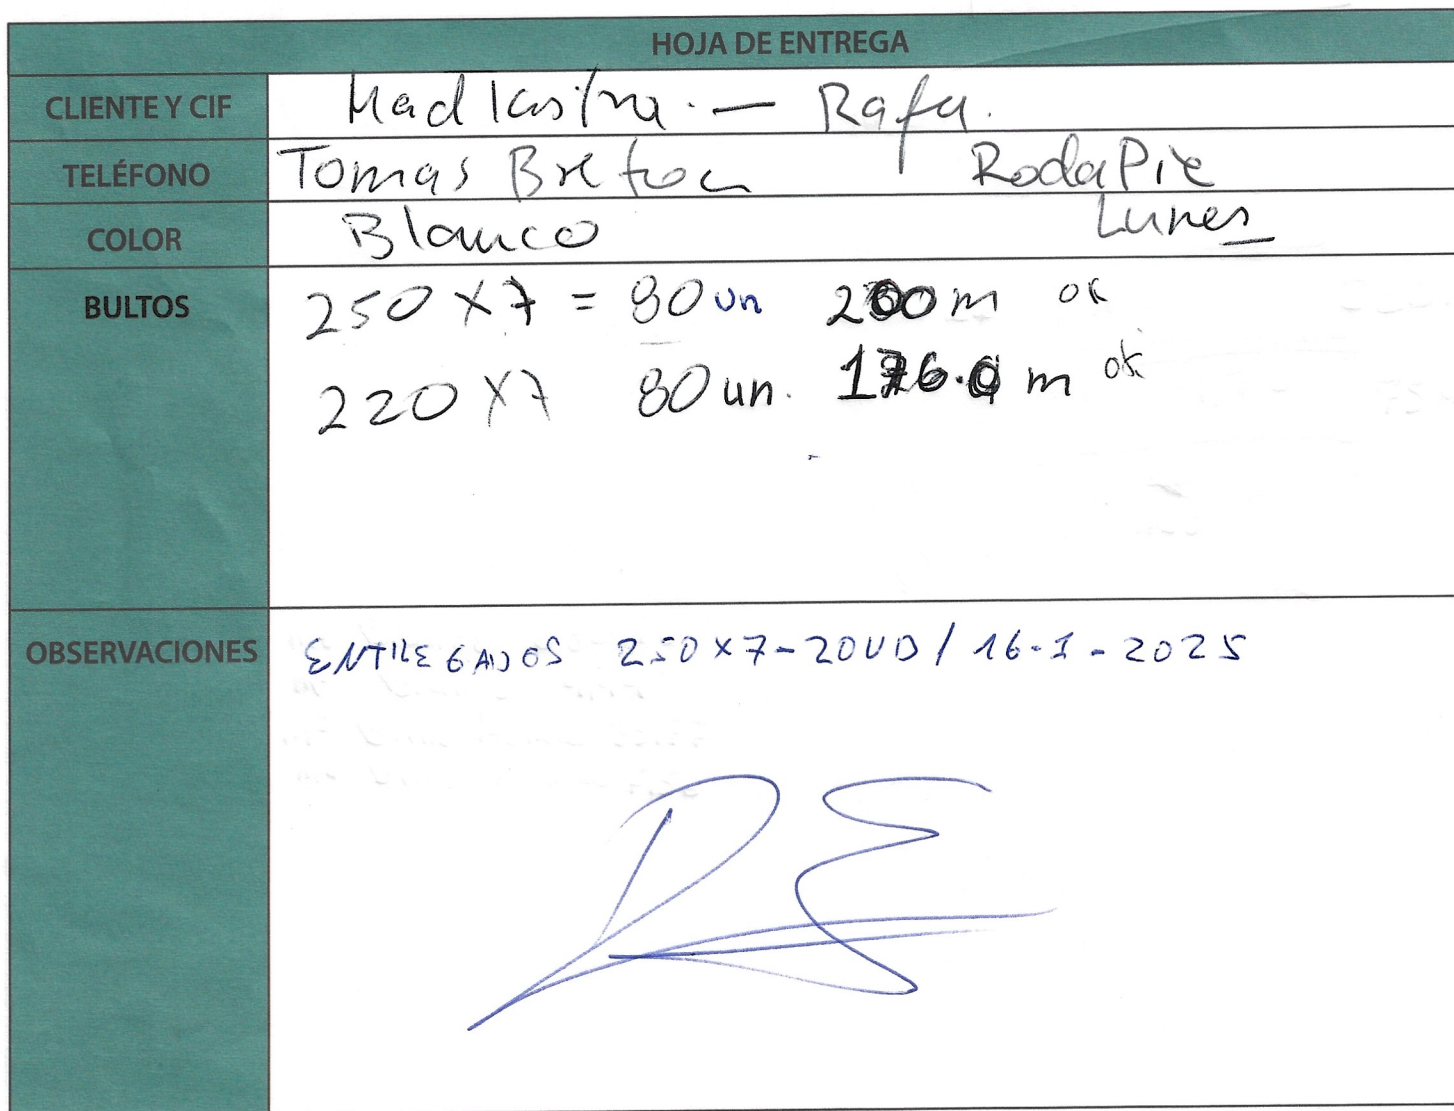 HOJA DE ENTREGA
CLIENTE Y CIF Mad Kastna. — Rafa.
TELÉFONO Tomas Breton RodaPie
COLOR Blanco Lunes
BULTOS 250 X 7 = 80 un 200 m ok
220 X 7 80 un. 176.0 m ok
OBSERVACIONES ENTREGADOS 250 X 7 - 20 UD / 16-1-2025